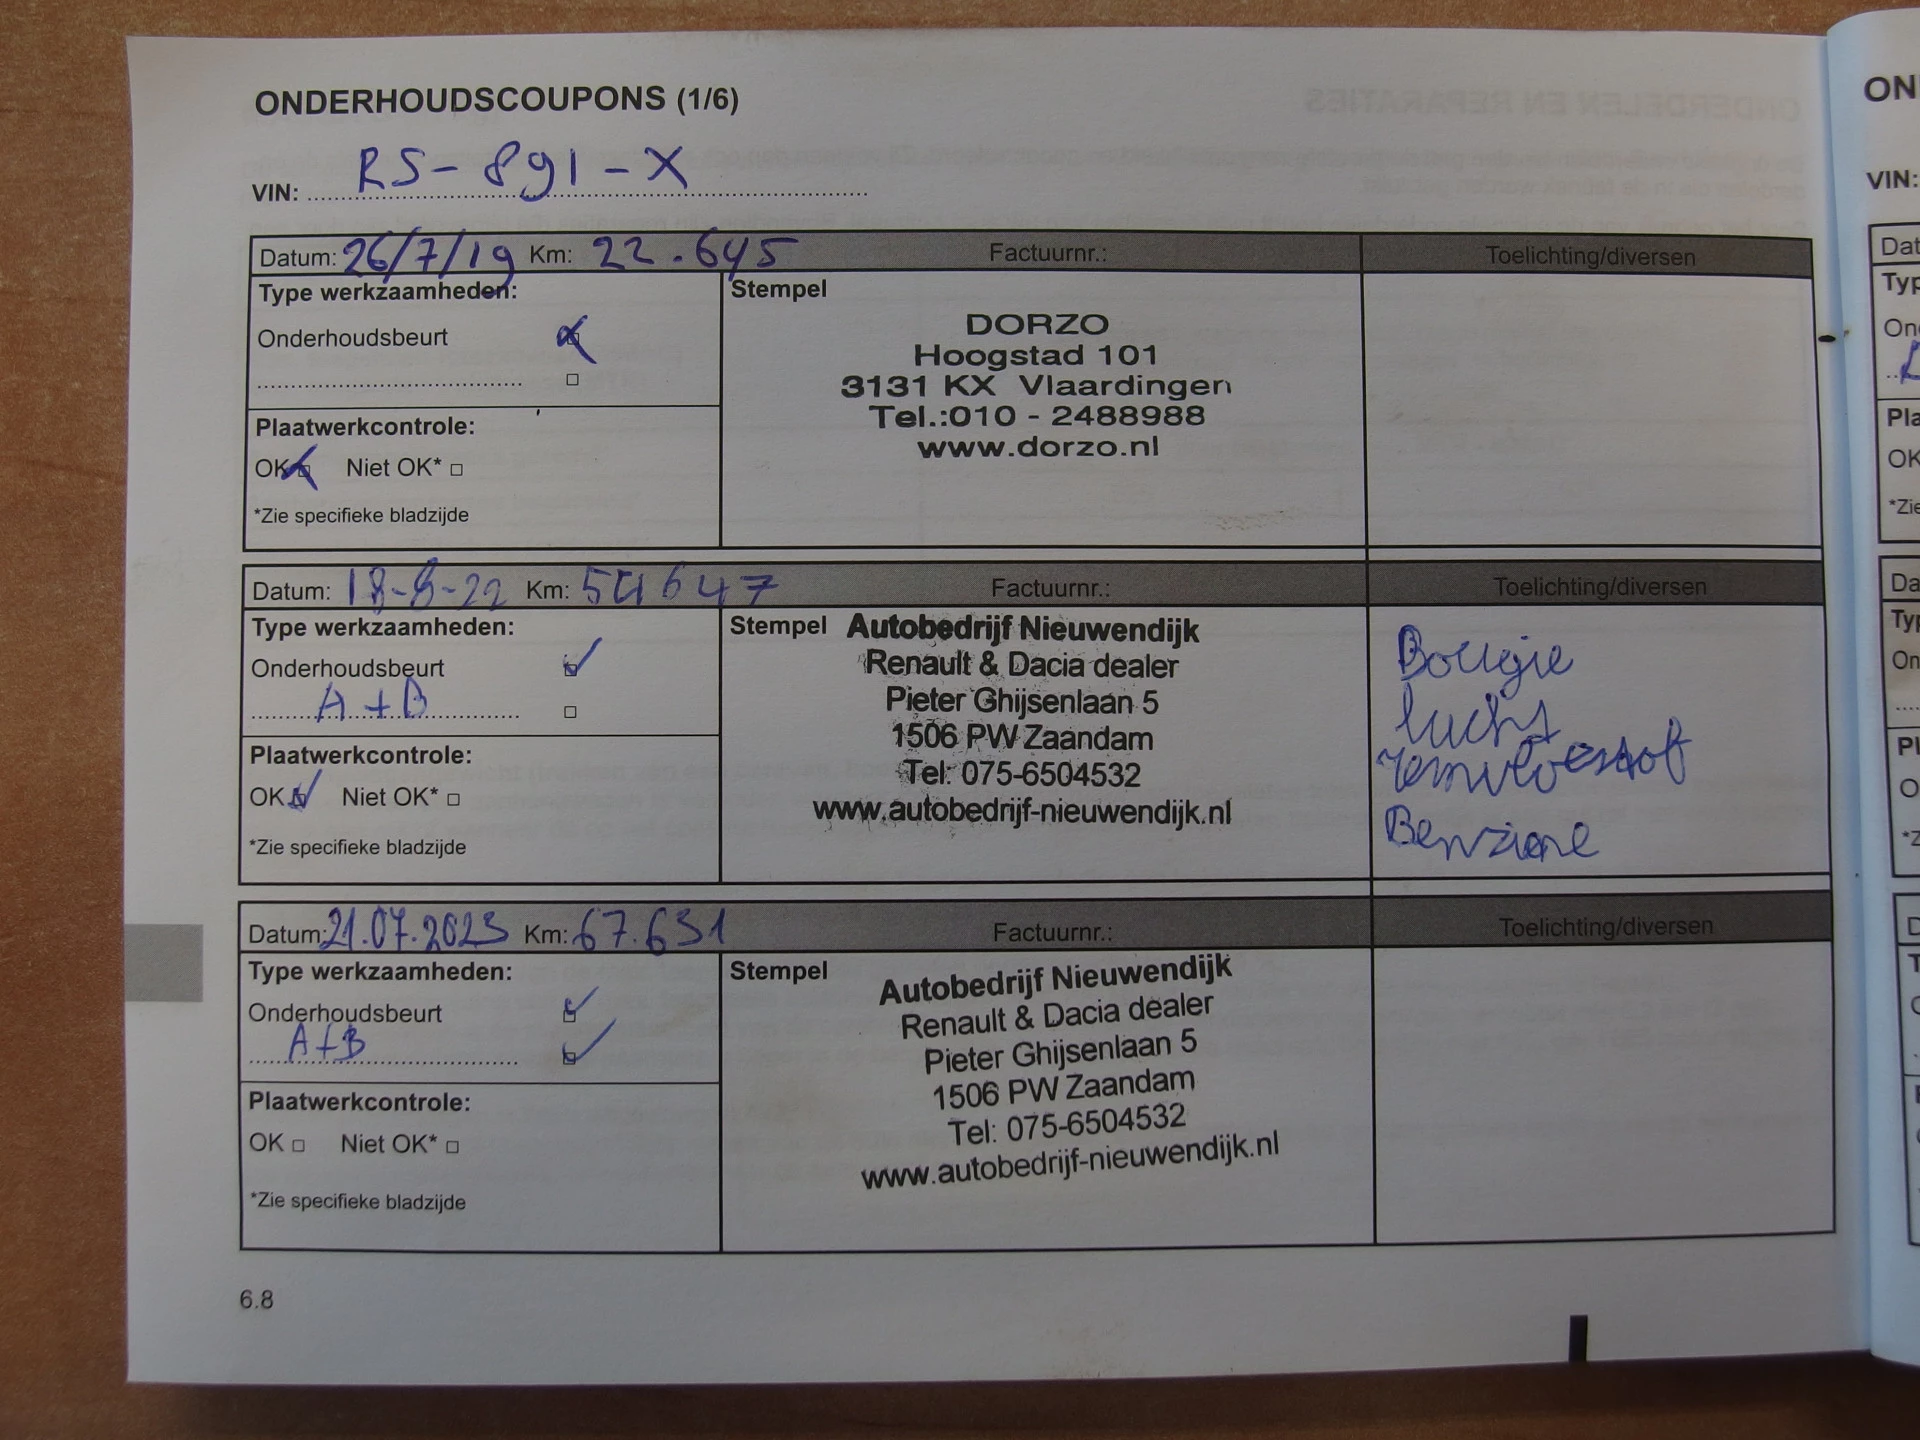 ONDERHOUDSCOUPONS (1/6)
VIN: RS-891-X
Datum: 26/7/19 Km: 22.645 Factuurnr.: Toelichting/diversen
Type werkzaamheden:
Stempel
Onderhoudsbeurt
DORZO
Hoogstad 101
3131 KX Vlaardingen
Tel.:010 - 2488988
www.dorzo.nl
Plaatwerkcontrole:
OK Niet OK*
*Zie specifieke bladzijde
Datum: 18-8-22 Km: 54647 Factuurnr.: Toelichting/diversen
Type werkzaamheden:
Onderhoudsbeurt
A+B
Plaatwerkcontrole:
OK Niet OK*
*Zie specifieke bladzijde
Stempel
Autobedrijf Nieuwendijk
Renault & Dacia dealer
Pieter Ghijsenlaan 5
1506 PW Zaandam
Tel: 075-6504532
www.autobedrijf-nieuwendijk.nl
Bougie
lucht
remvloeistof
Benzine
Datum: 21.07.2023 Km: 67.631 Factuurnr.: Toelichting/diversen
Type werkzaamheden:
Onderhoudsbeurt
A+B
Plaatwerkcontrole:
OK Niet OK*
*Zie specifieke bladzijde
Stempel
Autobedrijf Nieuwendijk
Renault & Dacia dealer
Pieter Ghijsenlaan 5
1506 PW Zaandam
Tel: 075-6504532
www.autobedrijf-nieuwendijk.nl
6.8
VIN: